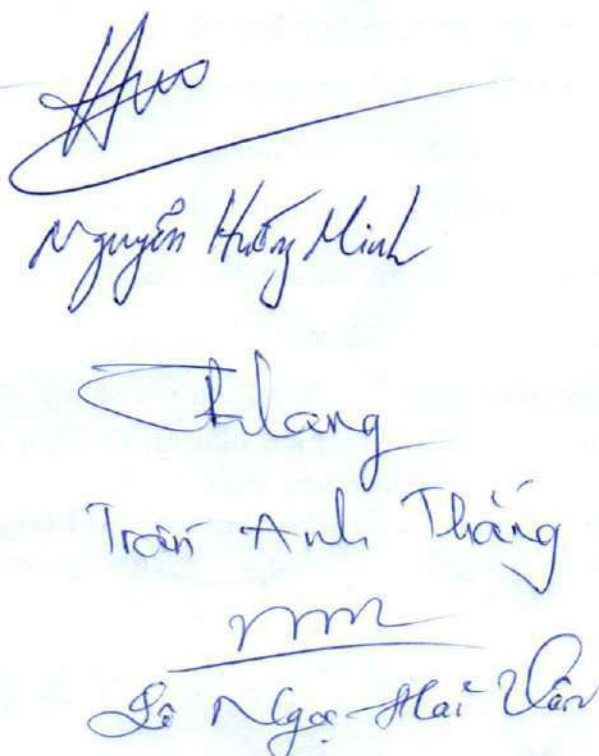 Nguyễn Hường Minh
Thang
Trần Anh Thắng
Lê Ngọc Hải Vân